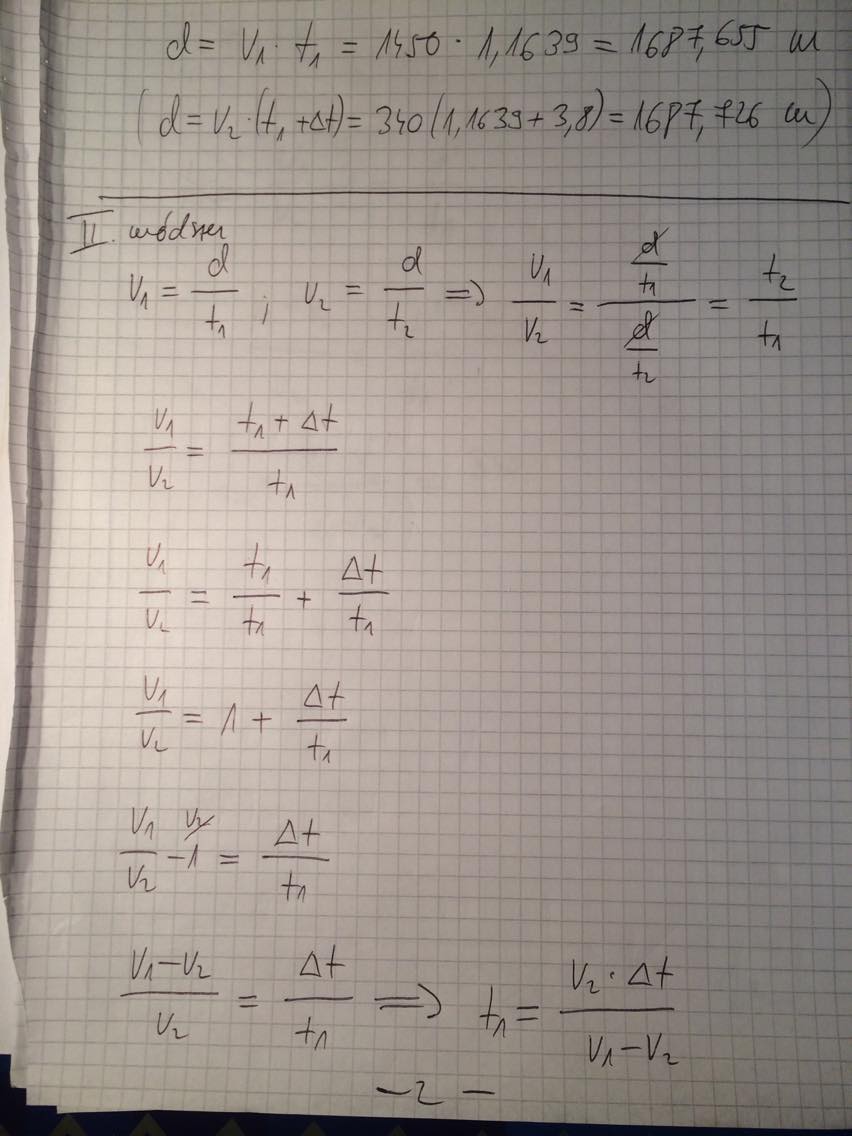 d = V₁ · t₁ = 1450 · 1,1639 = 1687,655 m
(d = V₂ · (t₁ + Δt) = 340 (1,1639 + 3,8) = 1687,726 m)
II. módszer
V₁ = d/t₁ ; V₂ = d/t₂ ⇒ V₁/V₂ = (d/t₁)/(d/t₂) = t₂/t₁
V₁/V₂ = (t₁ + Δt)/t₁
V₁/V₂ = t₁/t₁ + Δt/t₁
V₁/V₂ = 1 + Δt/t₁
V₁/V₂ - 1 V₂ = Δt/t₁
(V₁ - V₂)/V₂ = Δt/t₁ ⇒ t₁ = (V₂ · Δt)/(V₁ - V₂)
- 2 -